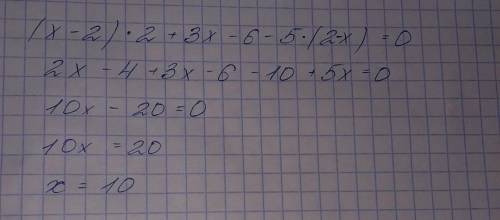 (x-2)·2+3x-6-5·(2-x)=0
2x-4+3x-6-10+5x=0
10x-20=0
10x=20
x=10